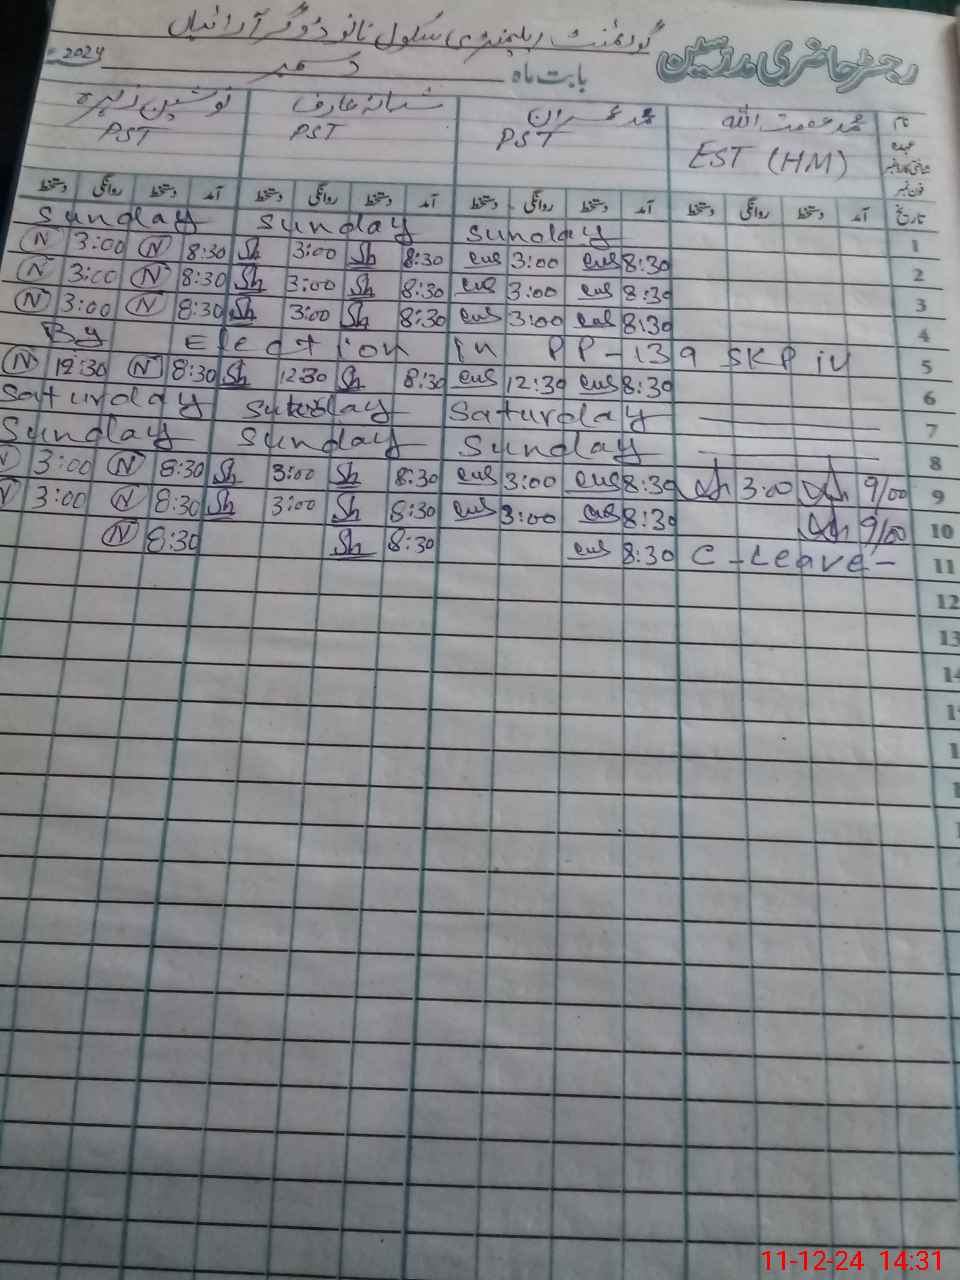 رجسٹر حاضری مدرسین گورنمنٹ ایلیمنٹری سکول نانو ڈوگر آرائیاں
بابت ماہ دسمبر 2024
نام محمد عصمت اللہ محمد عمران شبانہ عارف نوشین زہرہ
عہدہ EST (HM) PST PST PST
تاریخ آمد دستخط روانگی دستخط آمد دستخط روانگی دستخط آمد دستخط روانگی دستخط آمد دستخط روانگی دستخط
Sunday Sunday Sunday 1
N 3:00 N 8:30 Sh 3:00 Sh 8:30 3:00 8:30 2
N 3:00 N 8:30 Sh 3:00 Sh 8:30 3:00 8:30 3
N 3:00 N 8:30 Sh 3:00 Sh 8:30 3:00 8:30 4
By Election in PP-139 SKP iv 5
N 12:30 N 8:30 Sh 12:30 Sh 8:30 12:30 8:30 6
Saturday Saturday Saturday 7
Sunday Sunday Sunday 8
N 3:00 N 8:30 Sh 3:00 Sh 8:30 3:00 8:30 3:00 9/00 9
N 3:00 N 8:30 Sh 3:00 Sh 8:30 3:00 8:30 9/00 10
N 8:30 Sh 8:30 8:30 C-Leave- 11
12
13
11-12-24 14:31